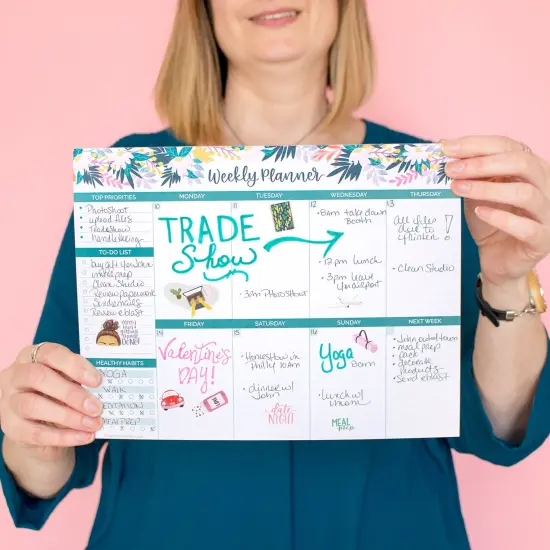 Weekly Planner
TOP PRIORITIES
PhotoShoot
upload files
Tradeshow
handlettering
TO-DO LIST
meal prep
Clean Studio
Review paperwork
Send emails
Review eblast
HEALTHY HABITS
YOGA
WALK
MEDITATION
MEAL PREP
MONDAY
10
TRADE
Show
TUESDAY
11
3pm PhotoShoot
WEDNESDAY
12
8am take down
Booth
12pm lunch
3pm leave
THURSDAY
13
All files
due to
!
Clean Studio
FRIDAY
14
Valentine's
DAY!
SATURDAY
15
Homeshow in
Philly 10am
dinner w/
date
NIGHT
SUNDAY
16
Yoga
8am
Lunch w/
mom
MEAL
prep
NEXT WEEK
meal prep
pack
decorate
products
Send eblast